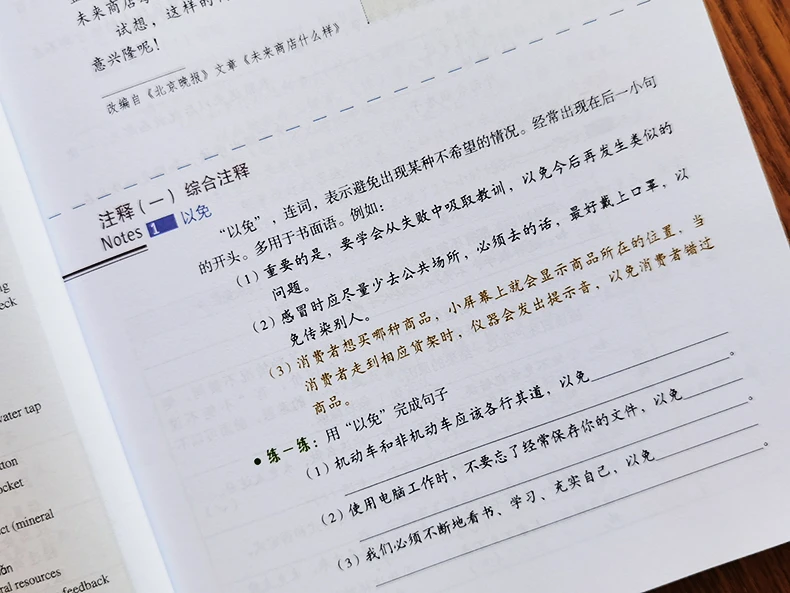 未来商店
试想，这样的
意兴隆呢！
改编自《北京晚报》文章《未来商店什么样》
注释（一） 综合注释
Notes 1 以免
“以免”，连词，表示避免出现某种不希望的情况。经常出现在后一小句
的开头。多用于书面语。例如：
（1）重要的是，要学会从失败中吸取教训，以免今后再发生类似的
问题。
（2）感冒时应尽量少去公共场所，必须去的话，最好戴上口罩，以
免传染别人。
（3）消费者想买哪种商品，小屏幕上就会显示商品所在的位置，当
消费者走到相应货架时，仪器会发出提示音，以免消费者错过
商品。
练一练：用“以免”完成句子
（1）机动车和非机动车应该各行其道，以免
。
（2）使用电脑工作时，不要忘了经常保存你的文件，以免
。
（3）我们必须不断地看书、学习、充实自己，以免
。
water tap
ral resources
feedback